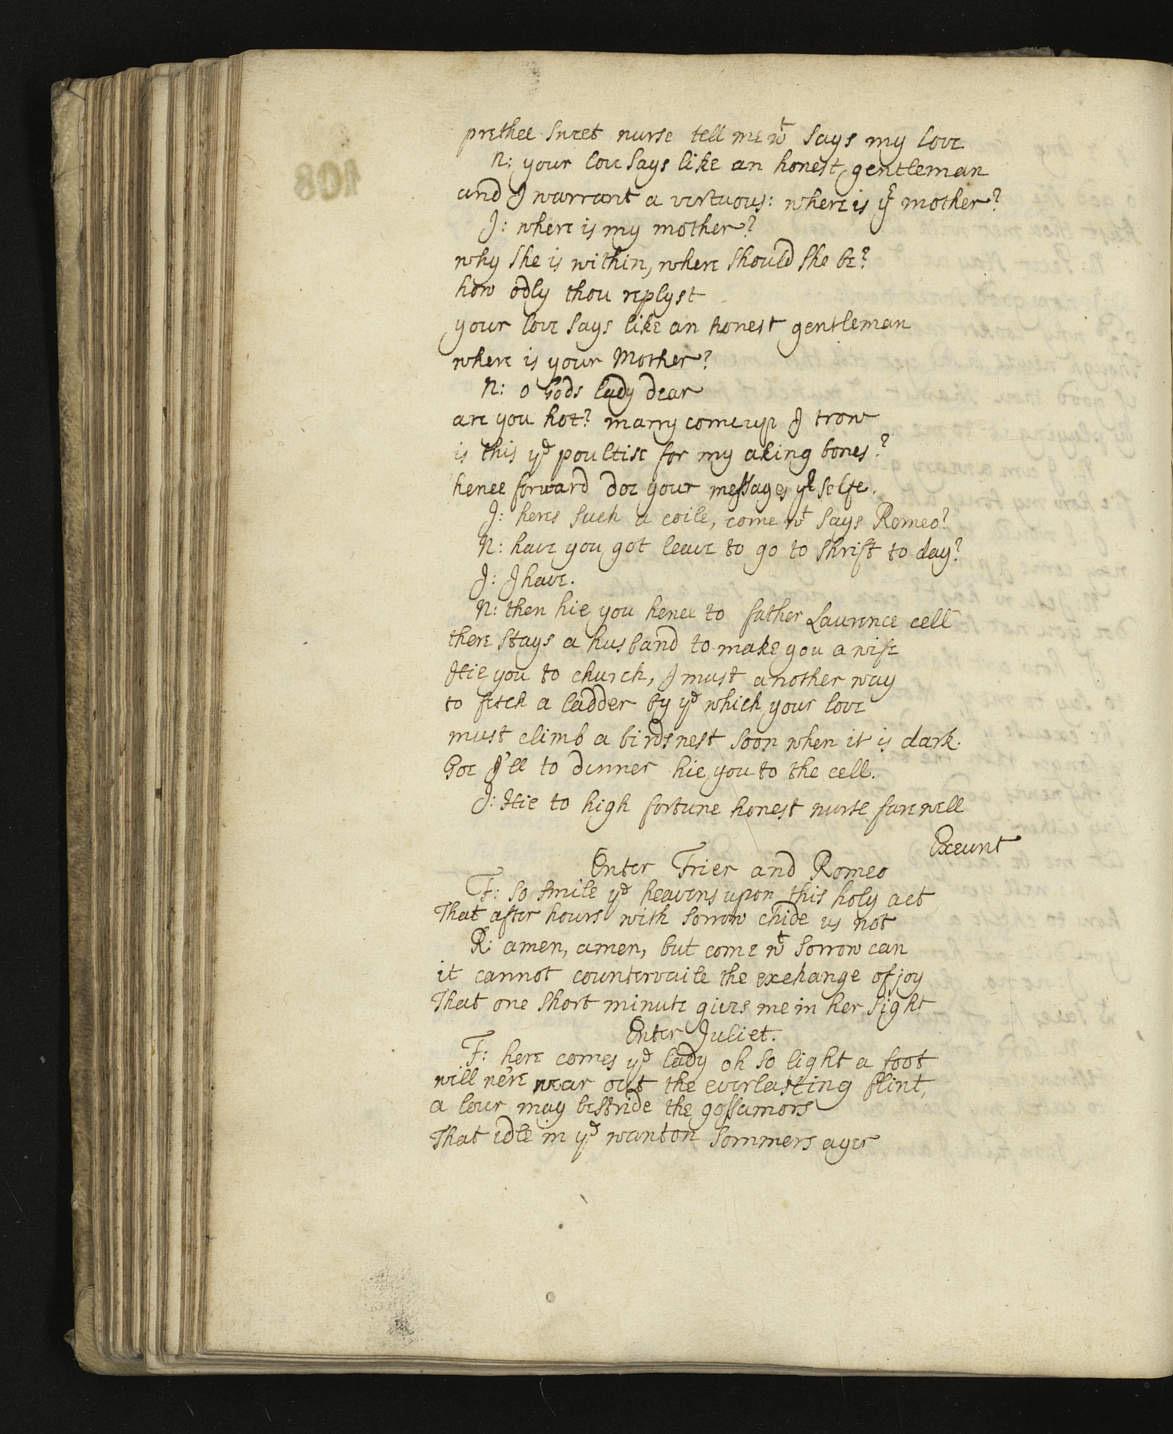 prethee sweet nurse tell me wt says my love
N: your love says like an honest gentleman
and I warrant a vertuous: where is yr mother?
J: where is my mother?
why she is within, where should she be?
how odly thou replyst
your love says like an honest gentleman
where is your Mother?
N: o Gods lady dear
are you hot? marry come up I trow
is this ye poultise for my aking bones?
hence forward doe your messages yr selfe.
J: heres such a coile, come wt says Romeo?
N: have you got leave to go to shrift to day?
J: I have.
N: then hie you hence to father Laurence cell
there stays a husband to make you a wife
Hie you to church, I must another way
to fetch a ladder by ye which your love
must climb a birds nest soon when it is dark.
Goe I'll to dinner hie you to the cell.
J: Hie to high fortune honest nurse farewell
Exeunt
Enter Frier and Romeo
F: so smile ye heavens upon this holy act
That after hours with sorrow chide us not
R: amen, amen, but come wt sorrow can
it cannot countervaile the exchange of joy
That one short minute gives me in her sight
Enter Juliet.
F: here comes ye lady oh so light a foot
will ne're wear out the everlasting flint,
a lover may bestride the gossamors
That idle in ye wanton sommers ayre
108